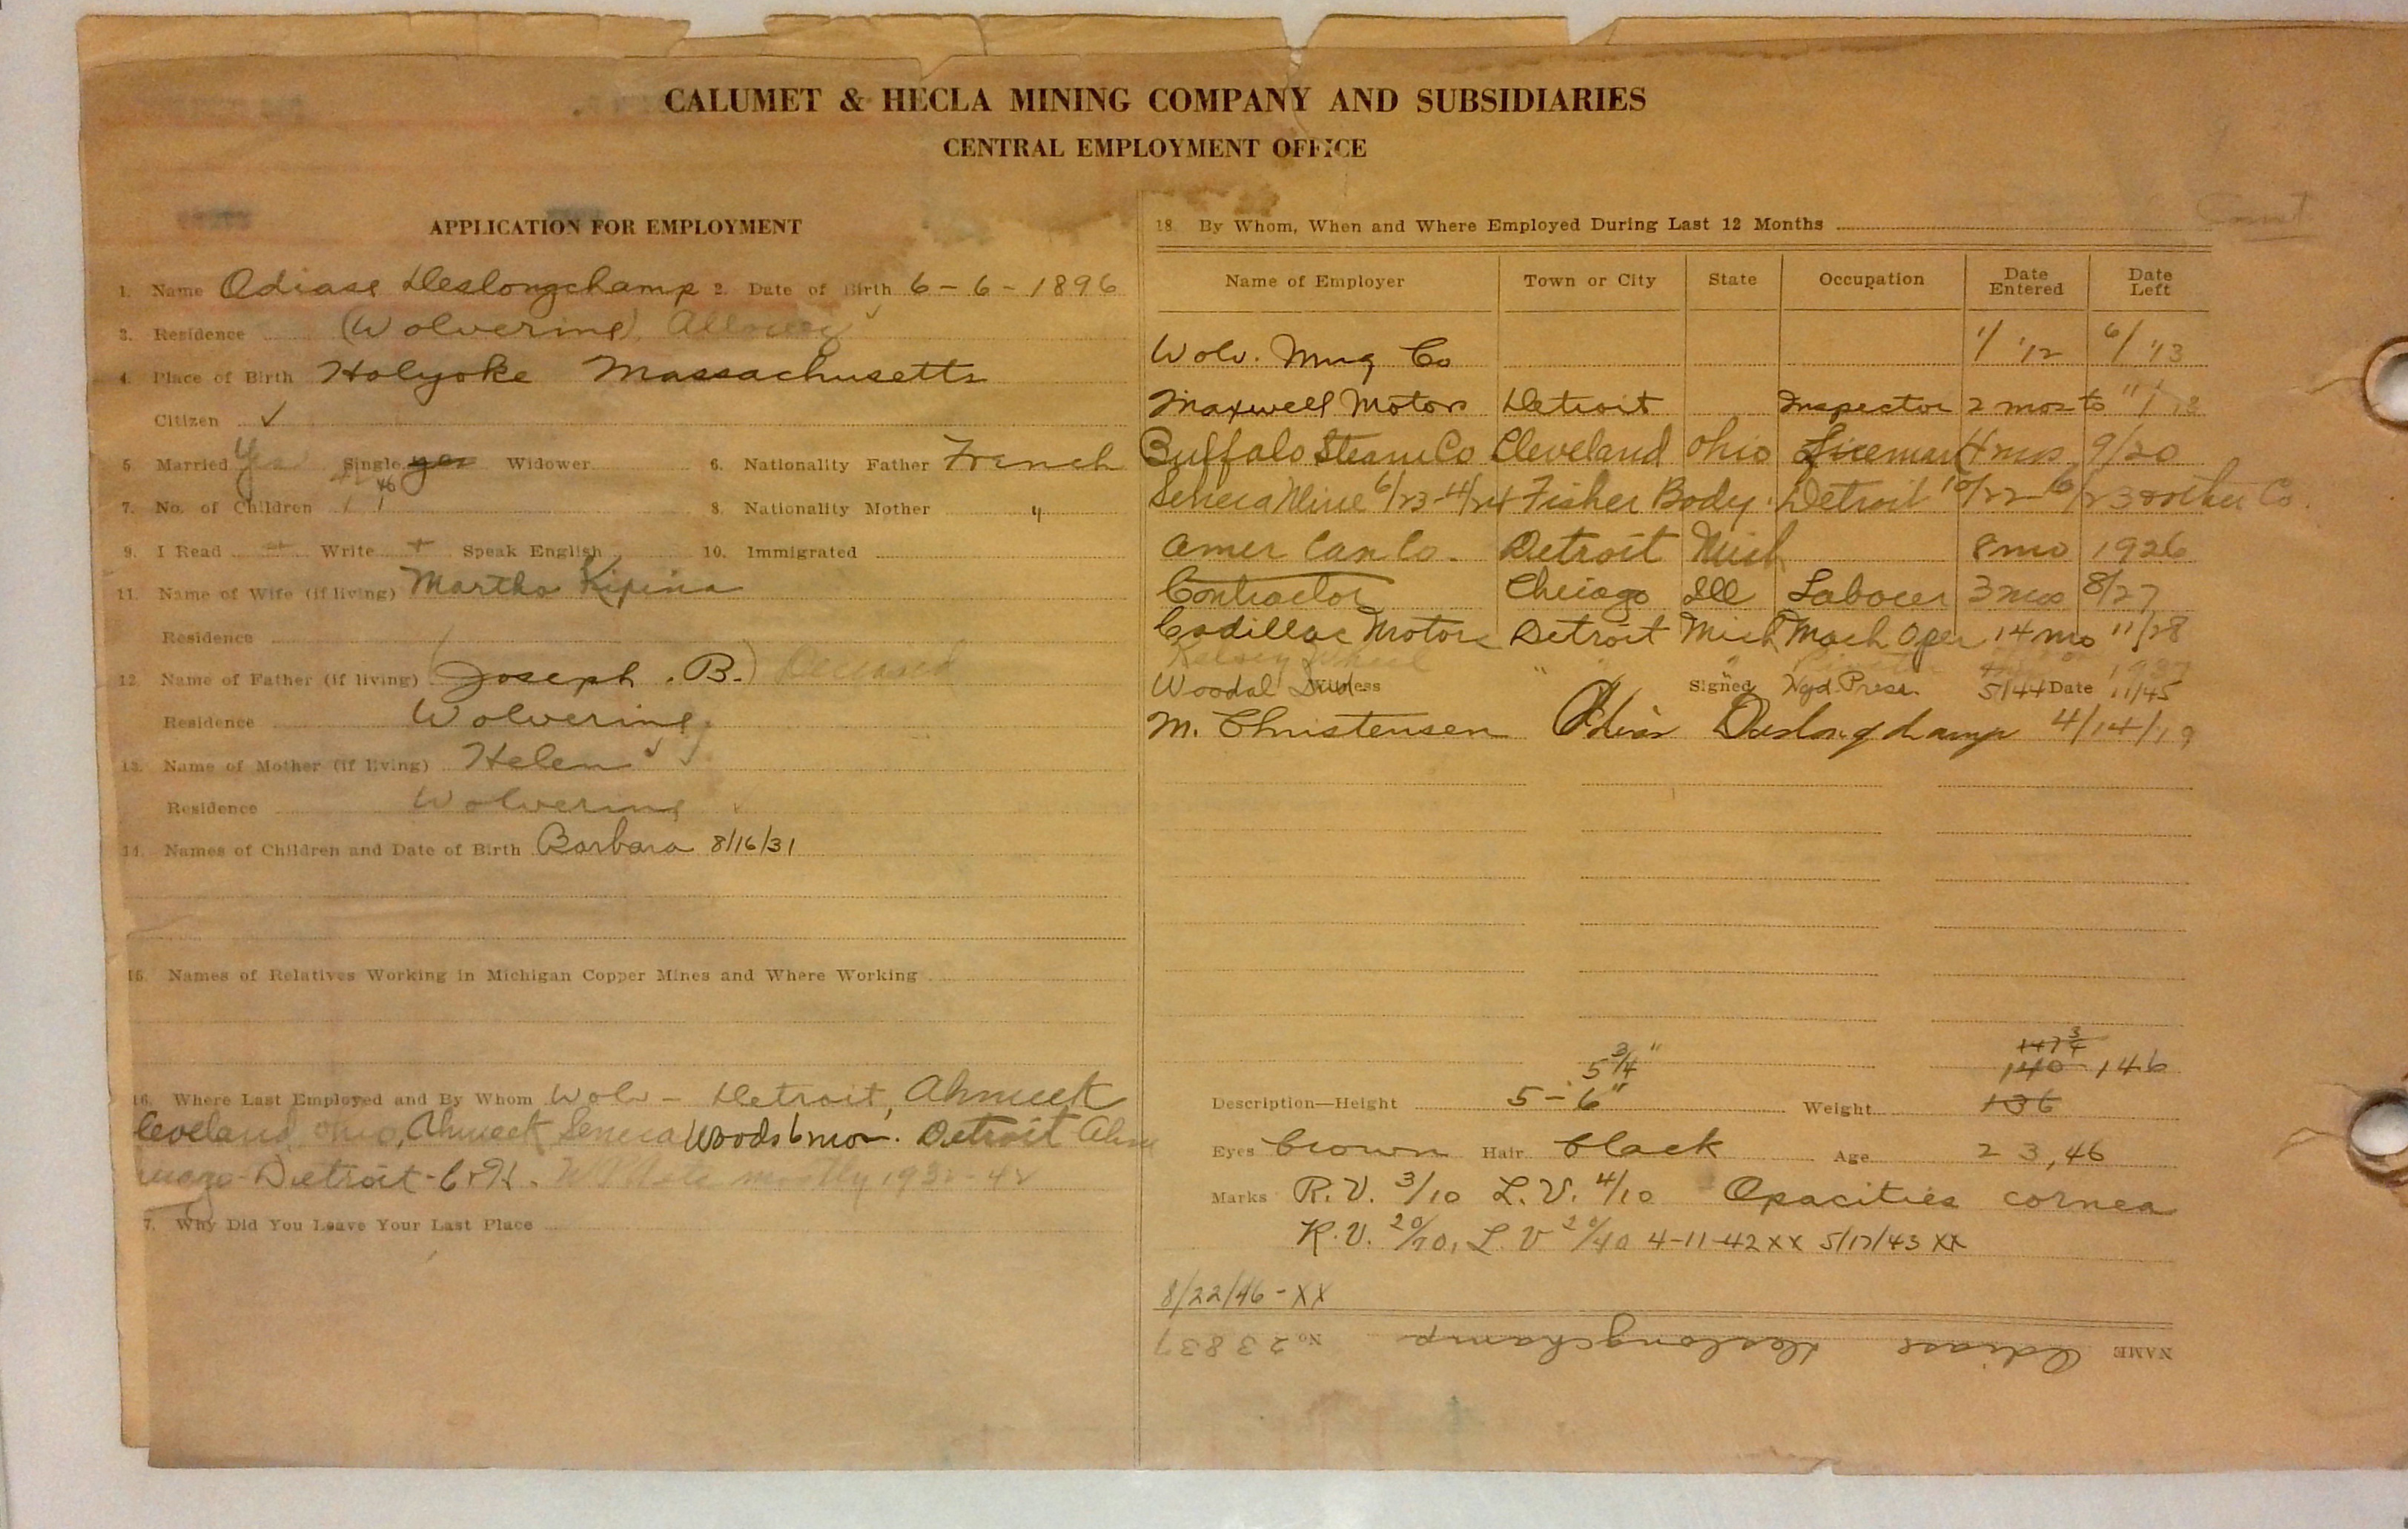 CALUMET & HECLA MINING COMPANY AND SUBSIDIARIES
CENTRAL EMPLOYMENT OFFICE
APPLICATION FOR EMPLOYMENT
1. Name Odiase Deslongchamp 2. Date of Birth 6-6-1896
3. Residence (Wolverine) Allouez
4. Place of Birth Holyoke Massachusetts
Citizen ✓
5. Married Yes Single yes Widower 6. Nationality Father French
46
7. No. of Children 1 1 8. Nationality Mother "
9. I Read + Write + Speak English 10. Immigrated
11. Name of Wife (if living) Martha Kipina
Residence
12. Name of Father (if living) (Joseph . B.) Deceased
Residence Wolverine
13. Name of Mother (if living) Helen ✓
Residence Wolverine ✓
14. Names of Children and Date of Birth Barbara 8/16/31
15. Names of Relatives Working in Michigan Copper Mines and Where Working
16. Where Last Employed and By Whom Wolv - Detroit, Ahmeek
Cleveland, Ohio, Ahmeek Seneca Woods 6 mos. Detroit Ahm
Detroit - C&H. mostly 193 - 42
7. Why Did You Leave Your Last Place
18. By Whom, When and Where Employed During Last 12 Months
Name of Employer Town or City State Occupation Date Entered Date Left
Wolv. Mng Co 1/ '12 6/ '13
Maxwell Motors Detroit Inspector 2 mos to 11/18
Buffalo Steam Co Cleveland Ohio Fireman 4 mos 9/20
Seneca Mine 6/23-4/24 Fisher Body. Detroit 10/22 - 6/23 other Co.
Amer Can Co. Detroit Mich 8 mo 1926
Contractor Chicago Ill Laborer 3 mos 8/27
Cadillac Motors Detroit Mich Mach Oper 14 mo 11/28
Kelsey Wheel " " " 1937
Woodal Ind Witness Signed Hyd. Press. 5/44 Date 11/45
M. Christensen Odias Deslongchamp 4/14/19
5 3/4" 147 3/4
140 146
Description—Height 5-6" Weight 136
Eyes brown Hair black Age 23, 46
Marks R.V. 3/10 L.V. 4/10 Opacities cornea
R.V. 20/70, L.V 20/40 4-11-42 XX 5/17/43 XX
8/22/46 - XX
NAME Odiase Deslongchamp No 23837